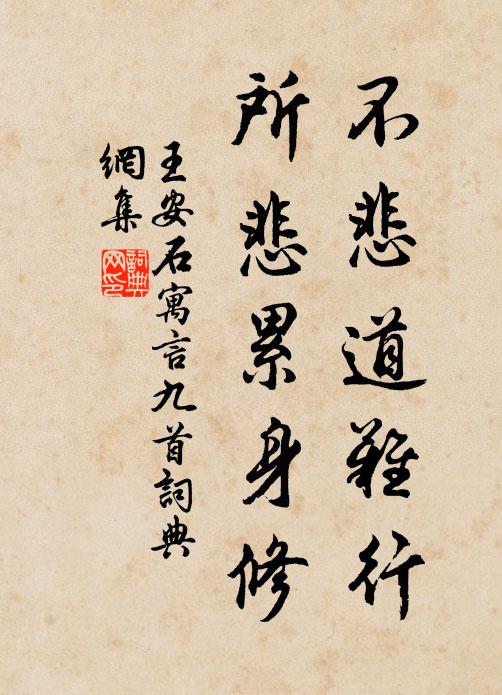 不悲道難行
所悲累身修
王安石寓言九首詞典
網集
詞典
网印